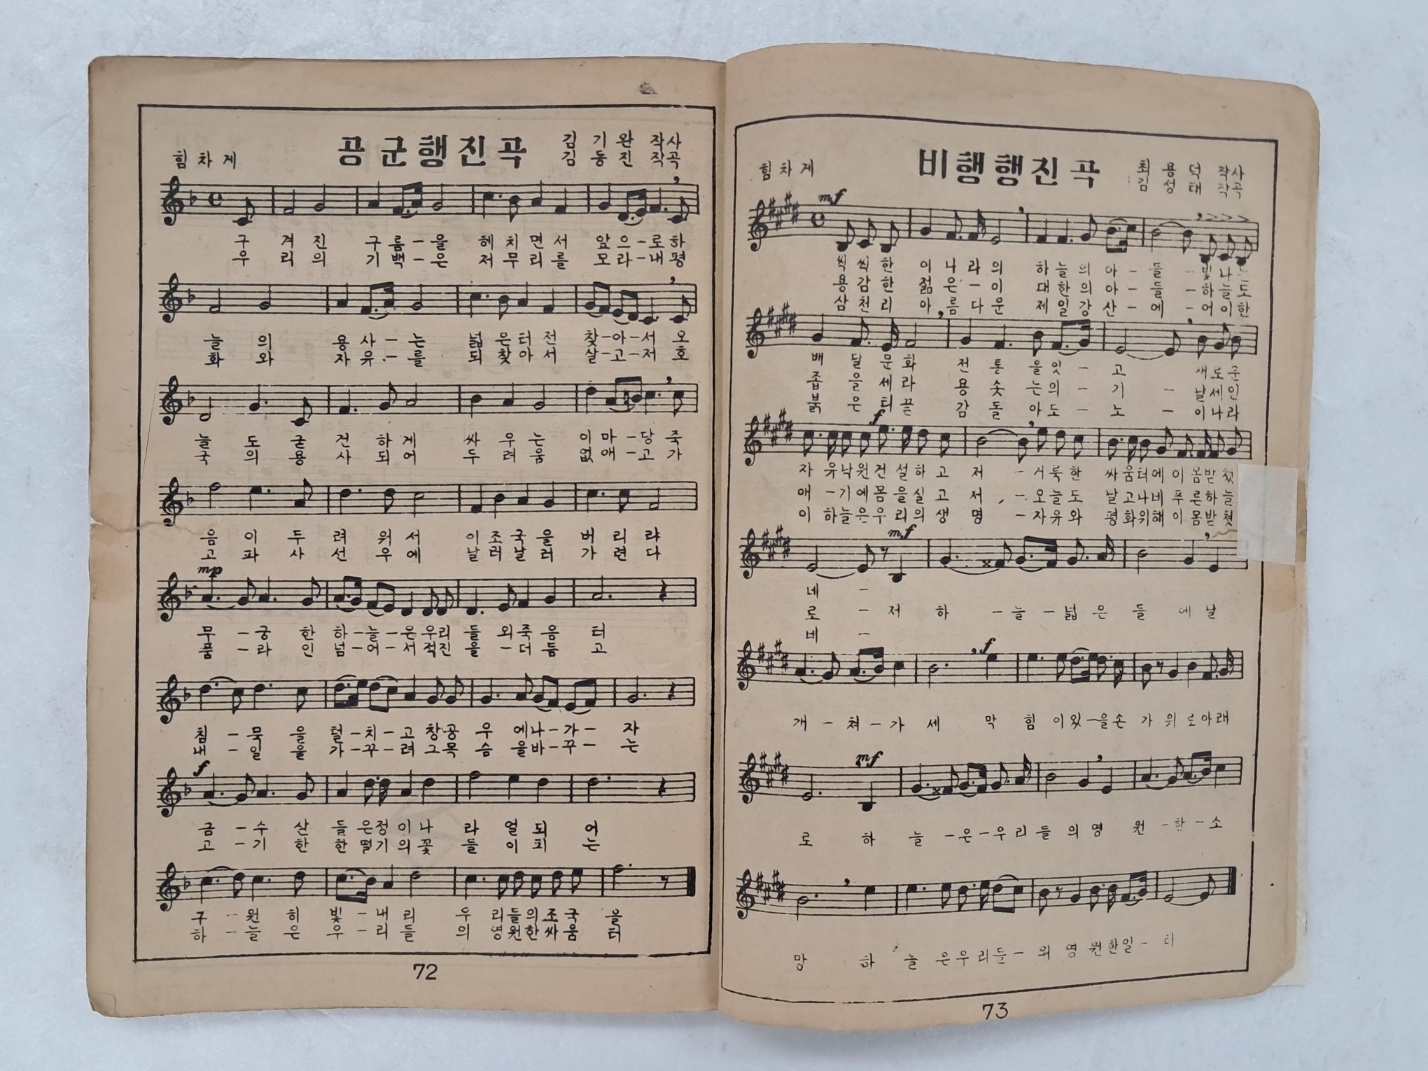 공군행진곡
힘차게
김기완 작사
김동진 작곡
구 겨 진 구름-을 헤 치 면 서 앞으-로하
우 리 의 기백-은 저 무 리 를 모라-내평
늘 의 용사-는 넓은터전 찾-아-서 오
화 와 자유-를 되찾아서 살-고-저 호
늘 도 굳 건 하 게 싸 우 는 이마-당 죽
국 의 용 사 되 어 두 려 움 없애-고 가
음 이 두 려 워 서 이 조 국 을 버 리 랴
고 파 사 선 우 에 날 러 날 러 가 련 다
mp
무 -궁 한 하-늘-은우리 들 외죽 음 터
품 -라 인 넘-어-서적진 을 -더 듬 고
침 -묵 을 털-치-고 창공 우 에나-가- 자
내 -일 을 가-꾸-려 그목 숨 을바-꾸- 는
f
금 -수 산 들 은정 이 나 라 얼 되 어
고 -기 한 한 떨기 의 꽃 들 이 피 는
구 -원 히 빛-내 리 우 리들의조국 을
하 -늘 은 우-리 들 의 영원한싸움 터
72
비행행진곡
힘차게
최용덕 작사
김성태 작곡
mf
씩 씩 한 이 나 라 의 하 늘 의 아 - 들 - 빛 나는
용 감 한 젊 은 - 이 대 한 의 아 - 들 - 하 늘 도
삼 천 리 아 름 다 운 제 일 강 산 - 에 - 어 이 한
배 달 문 화 전 통 을잇 - 고 새 도 군
좁 을 세 라 용 솟 는의 - 기 - 날 세 인
붉 은 티 끌 감 돌 아도 - 노 - 이 나 라
f
자 유낙원건 설 하 고 저 -서북 한 싸움터에 이 몸받 쳤
애 -기에몸을 실 고 저 -오늘 도 날고나네 푸 른하 늘
이 하늘은우 리 의 생 명 -자유 와 평화위해 이 몸받 쳣
mf
네 -
로 - 저 하 -늘 -넓 은 들 에 날
네 -
f
개 - 쳐 - 가 세 막 힘 이있-을손 가 위 로아래
mf
로 하 늘 -은-우리 들 의 영 원 -한-소
망 하 늘 은우리들- 의 영 원한일 - 터
73